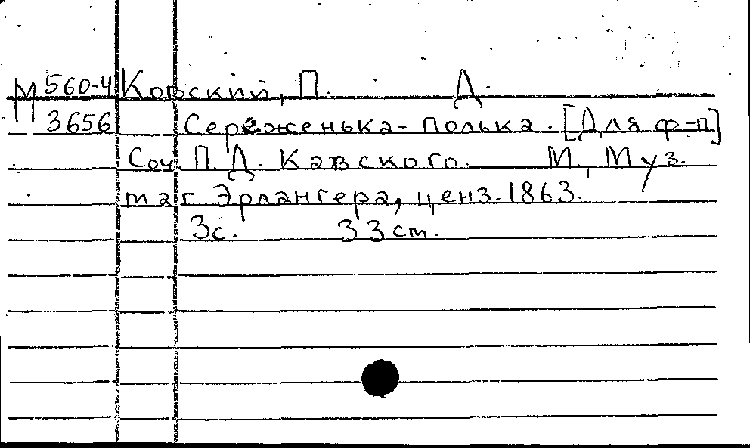 М 560-4 Ковский, П. Д.
3656 Сереженька-полька. [Для ф-п]
Соч. П. Д. Кавского. М., Муз.
маг. Эрлангера, ценз. 1863.
3с. 33 см.